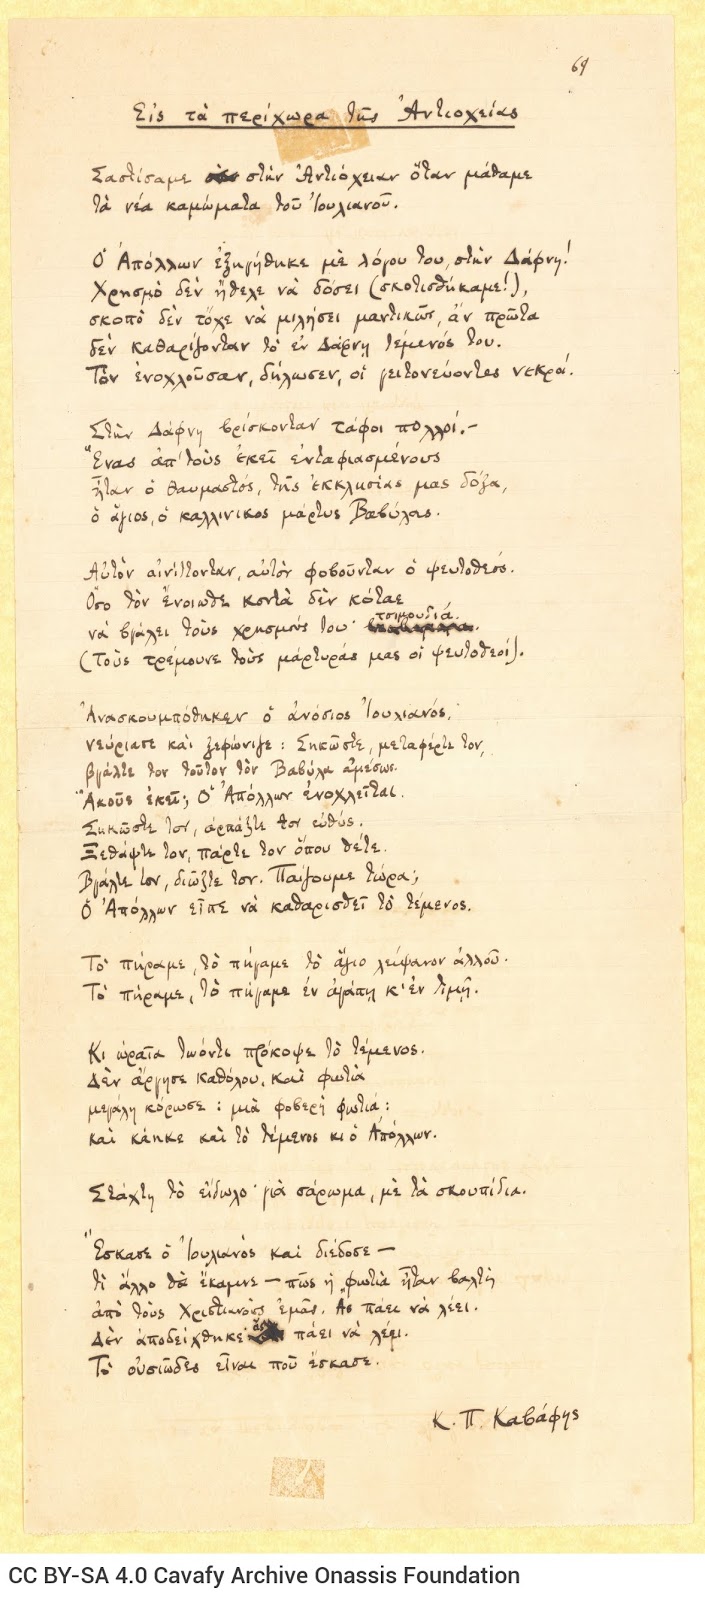 69
Εἰς τὰ περίχωρα τῆς Ἀντιοχείας
Σαστίσαμε στὴν Ἀντιόχειαν ὅταν μάθαμε
τὰ νέα καμώματα τοῦ Ἰουλιανοῦ.
Ὁ Ἀπόλλων ἐξηγήθηκε μὲ λόγου του, στὴν Δάφνη!
Χρησμὸ δὲν ἤθελε νὰ δόσει (σκοτισθήκαμε!),
σκοπὸ δὲν τὄχε νὰ μιλήσει μαντικῶς, ἂν πρῶτα
δὲν καθαρίζονταν τὸ ἐν Δάφνῃ τέμενός του.
Τὸν ἐνοχλοῦσαν, δήλωσεν, οἱ γειτονεύοντες νεκροί.
Στὴν Δάφνη βρίσκονταν τάφοι πολλοί.—
Ἕνας ἀπ' τοὺς ἐκεῖ ἐνταφιασμένους
ἦταν ὁ θαυμαστός, τῆς ἐκκλησίας μας δόξα,
ὁ ἅγιος, ὁ καλλίνικος μάρτυς Βαβύλας.
Αὐτὸν αἰνίττονταν, αὐτὸν φοβοῦνταν ὁ ψευτοθεός.
Ὅσο τὸν ἔνοιωθε κοντὰ δὲν κόταε
νὰ βγάλει τοὺς χρησμούς του· τσιμουδιά.
(Τοὺς τρέμουνε τοὺς μάρτυράς μας οἱ ψευτοθεοί).
Ἀνασκουμπώθηκεν ὁ ἀνόσιος Ἰουλιανός,
νεύριασε καὶ ξεφώνιζε: Σηκῶστε, μεταφέρτε τον,
βγάλτε τον τοῦτον τὸν Βαβύλα ἀμέσως.
Ἀκοῦς ἐκεῖ; Ὁ Ἀπόλλων ἐνοχλεῖται.
Σηκῶστε τον, ἁρπάξτε τον εὐθύς.
Ξεθάψτε τον, πάρτε τον ὅπου θέτε.
Βγάλτε τον, διῶξτε τον. Παίζουμε τώρα;
Ὁ Ἀπόλλων εἶπε νὰ καθαρισθεῖ τὸ τέμενος.
Τὸ πήραμε, τὸ πήγαμε τὸ ἅγιο λείψανον ἀλλοῦ.
Τὸ πήραμε, τὸ πήγαμε ἐν ἀγάπῃ κ' ἐν τιμῇ.
Κι ὡραῖα τωόντι πρόκοψε τὸ τέμενος.
Δὲν ἄργησε καθόλου, καὶ φωτιὰ
μεγάλη κόρωσε: μιὰ φοβερὴ φωτιά:
καὶ κάηκε καὶ τὸ τέμενος κι ὁ Ἀπόλλων.
Στάχτη τὸ εἴδωλο· γιὰ σάρωμα, μὲ τὰ σκουπίδια.
Ἔσκασε ὁ Ἰουλιανὸς καὶ διέδοσε—
τί ἄλλο θὰ ἔκαμνε—πῶς ἡ φωτιὰ ἦταν βαλτὴ
ἀπὸ τοὺς Χριστιανοὺς ἐμᾶς. Ἂς πάει νὰ λέει.
Δὲν ἀποδείχθηκε· ἂς πάει νὰ λέει.
Τὸ οὐσιῶδες εἶναι ποὺ ἔσκασε.
Κ. Π. Καβάφης
CC BY-SA 4.0 Cavafy Archive Onassis Foundation